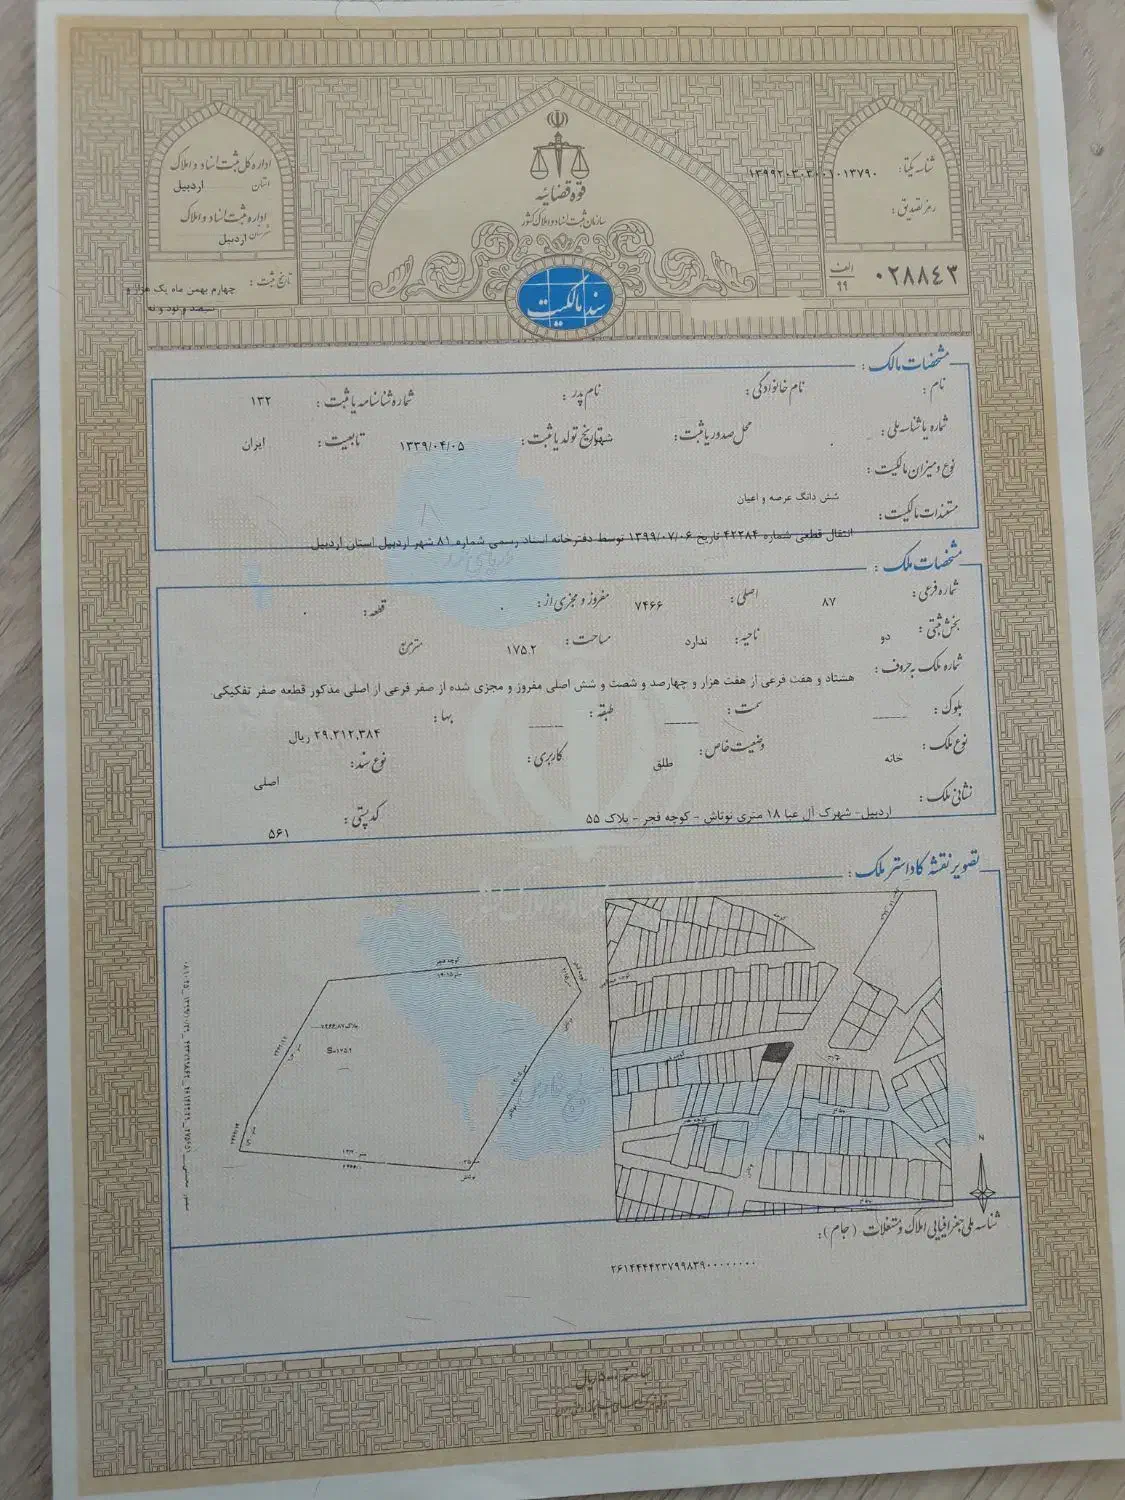 قوه قضائیه
سازمان ثبت اسناد و املاک کشور
سند مالکیت
شناسه یکتا: ۱۳۹۹۲۰۳۰۳۰۰۱۰۱۳۷۹۰
رمز تصدیق:
۰۲۸۸۴۳ الف ۹۹
اداره کل ثبت اسناد و املاک
استان اردبیل
اداره ثبت اسناد و املاک
شهرستان اردبیل
تاریخ ثبت: چهارم بهمن ماه یک هزار و
سیصد و نود و نه
مشخصات مالک:
نام: نام خانوادگی: نام پدر: شماره شناسنامه یا ثبت: ۱۳۲
شماره یا شناسه ملی: محل صدور یا ثبت: تاریخ تولد یا ثبت: ۱۳۳۹/۰۴/۰۵ تابعیت: ایران
نوع و میزان مالکیت:
شش دانگ عرصه و اعیان
مستندات مالکیت:
انتقال قطعی شماره ۴۲۲۸۴ تاریخ ۱۳۹۹/۰۷/۰۶ توسط دفترخانه اسناد رسمی شماره ۸۱ شهر اردبیل استان اردبیل
مشخصات ملک:
شماره فرعی: ۸۷ اصلی: ۷۴۶۶ مفروز و مجزی از: ۰ قطعه: ۰
بخش ثبتی: دو ناحیه: ندارد مساحت: ۱۷۵.۲ متر مربع
شماره ملک به حروف:
هشتاد و هفت فرعی از هفت هزار و چهارصد و شصت و شش اصلی مفروز و مجزی شده از صفر فرعی از اصلی مذکور قطعه صفر تفکیکی.
بلوک: سمت: طبقه: بها: ۲۹.۳۱۲.۳۸۴ ریال
نوع ملک: خانه وضعیت خاص: طلق کاربری: نوع سند: اصلی
نشانی ملک:
اردبیل- شهرک آل عبا ۱۸ متری نوتاش - کوچه فجر - پلاک ۵۵ کد پستی: ۵۶۱
تصویر نقشه کاداستر ملک:
کوچه فجر
پلاک ۷۴۶۶/۸۷
N
شناسه ملی جغرافیایی املاک و مستغلات (جام):
۲۶۱۴۴۴۴۲۳۷۹۹۸۳۹۰۰۰۰۰۰۰۰